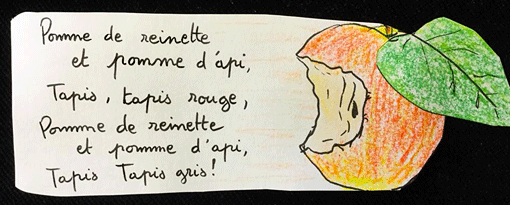 Pomme de reinette
et pomme d'api,
Tapis, tapis rouge,
Pomme de reinette
et pomme d'api,
Tapis Tapis gris!